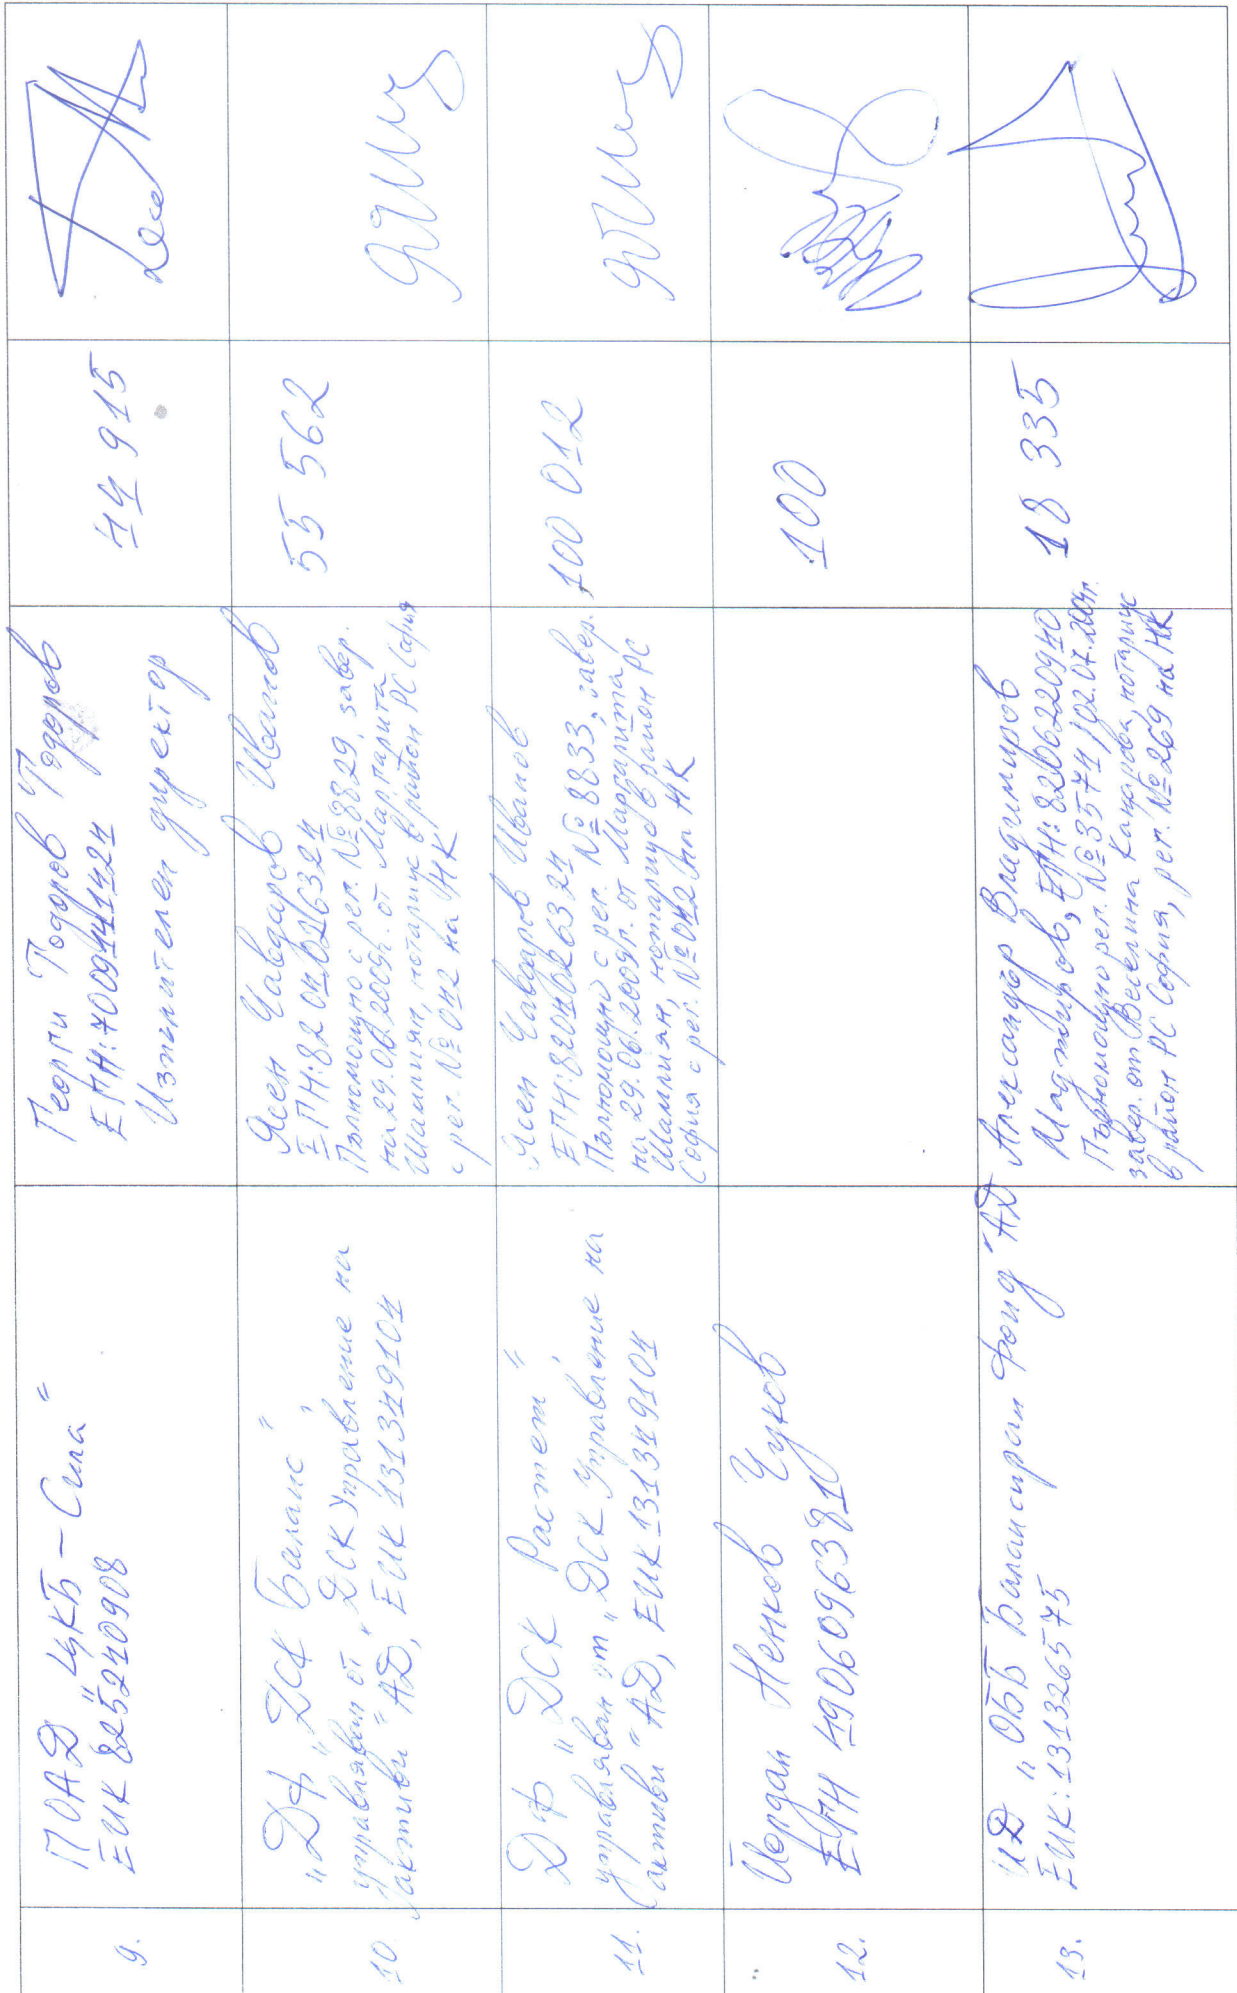 9.
ПОАД "ЦКБ - Сила"
ЕИК 825240908
Георги Тодоров Тодоров
ЕГН: 7009141424
Изпълнителен директор
44 915
10.
"ДФ "ДСК Баланс",
управляван от "ДСК Управление на
активи" АД, ЕИК 131349104
Ясен Чавдаров Иванов
ЕГН: 8204026324
Пълномощно с рег. № 8829, завер.
на 29.06.2009г. от Маргарита
Шамлиян, нотариус в район РС София
с рег. № 042 на НК
55 562
11.
ДФ "ДСК Растеж",
управляван от "ДСК Управление на
активи" АД, ЕИК 131349104
Ясен Чавдаров Иванов
ЕГН: 8204026324
Пълномощно с рег. № 8833, завер.
на 29.06.2009г. от Маргарита
Шамлиян, нотариус в район РС
София с рег. № 042 на НК
100 012
12.
Йордан Ненков Чуков
ЕГН 4906096381
100
13.
ИД "ОББ Балансиран фонд" АД
ЕИК: 131326575
Александър Владимиров
ЕГН: 8206220940
Пълномощно рег. № 3574/02.07.2009г.
завер. от Веселина нотариус
в район РС София, рег. № 269 на НК
18 335